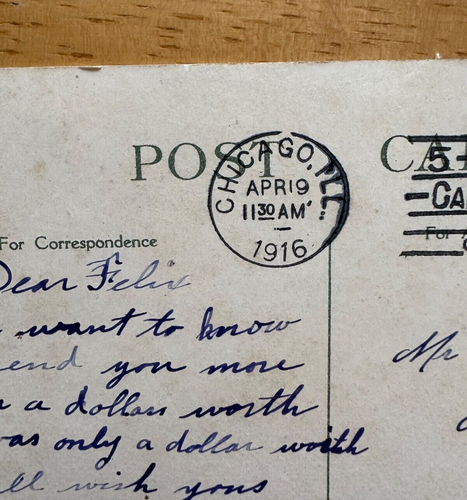 POST CA
CHICAGO, ILL.
APR 19
11 30 AM
1916
5
CA
For Correspondence
For
Dear Felix
want to know
end you more
a dollars worth
was only a dollar worth
ll wish yous
Mr